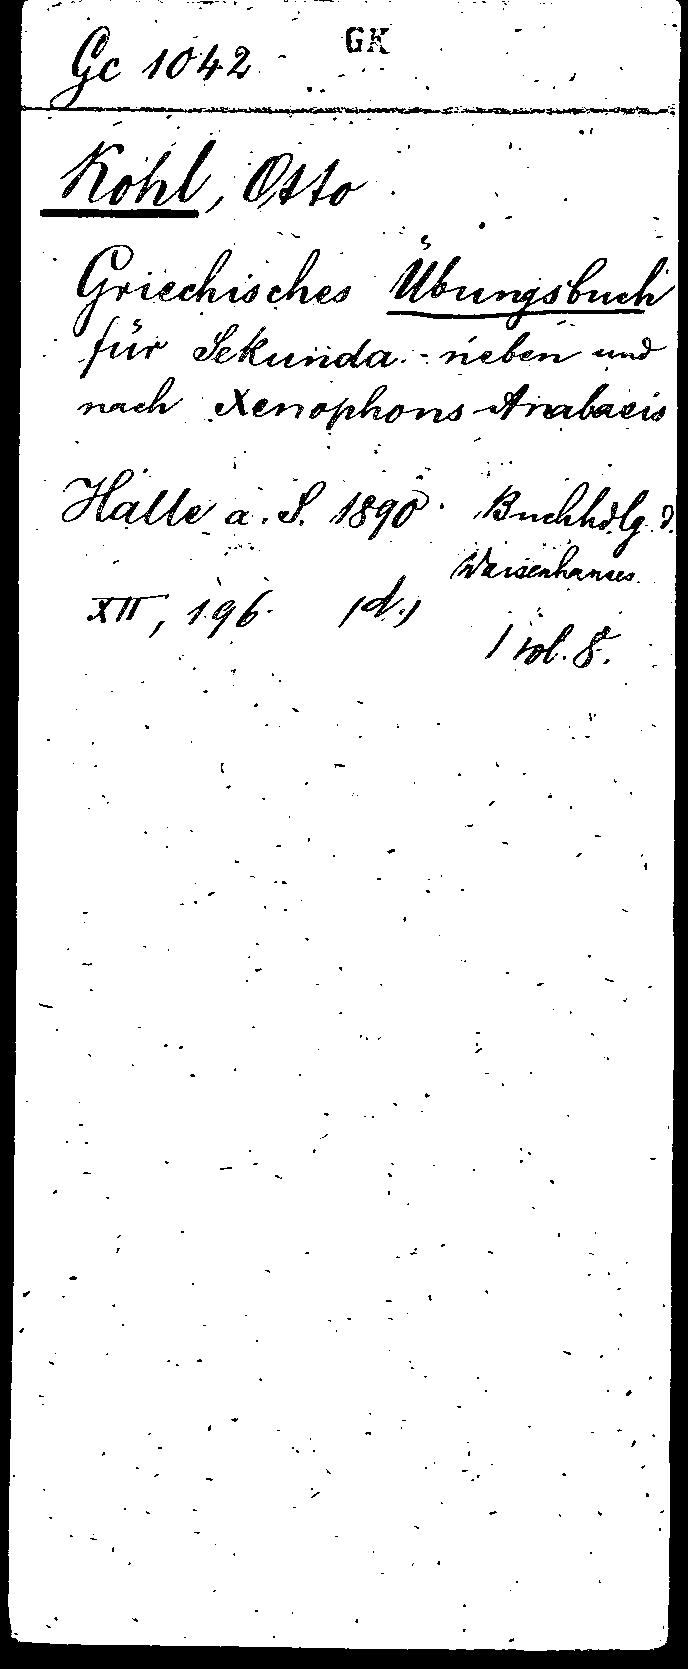 Gc 1042 GK
Kohl, Otto
Griechisches Übungsbuch
für Sekunda neben und
nach Xenophons Anabasis
Halle a. S. 1890. Buchhdlg. d.
Waisenhauses
XII, 196. (d.)
1 vol. 8.